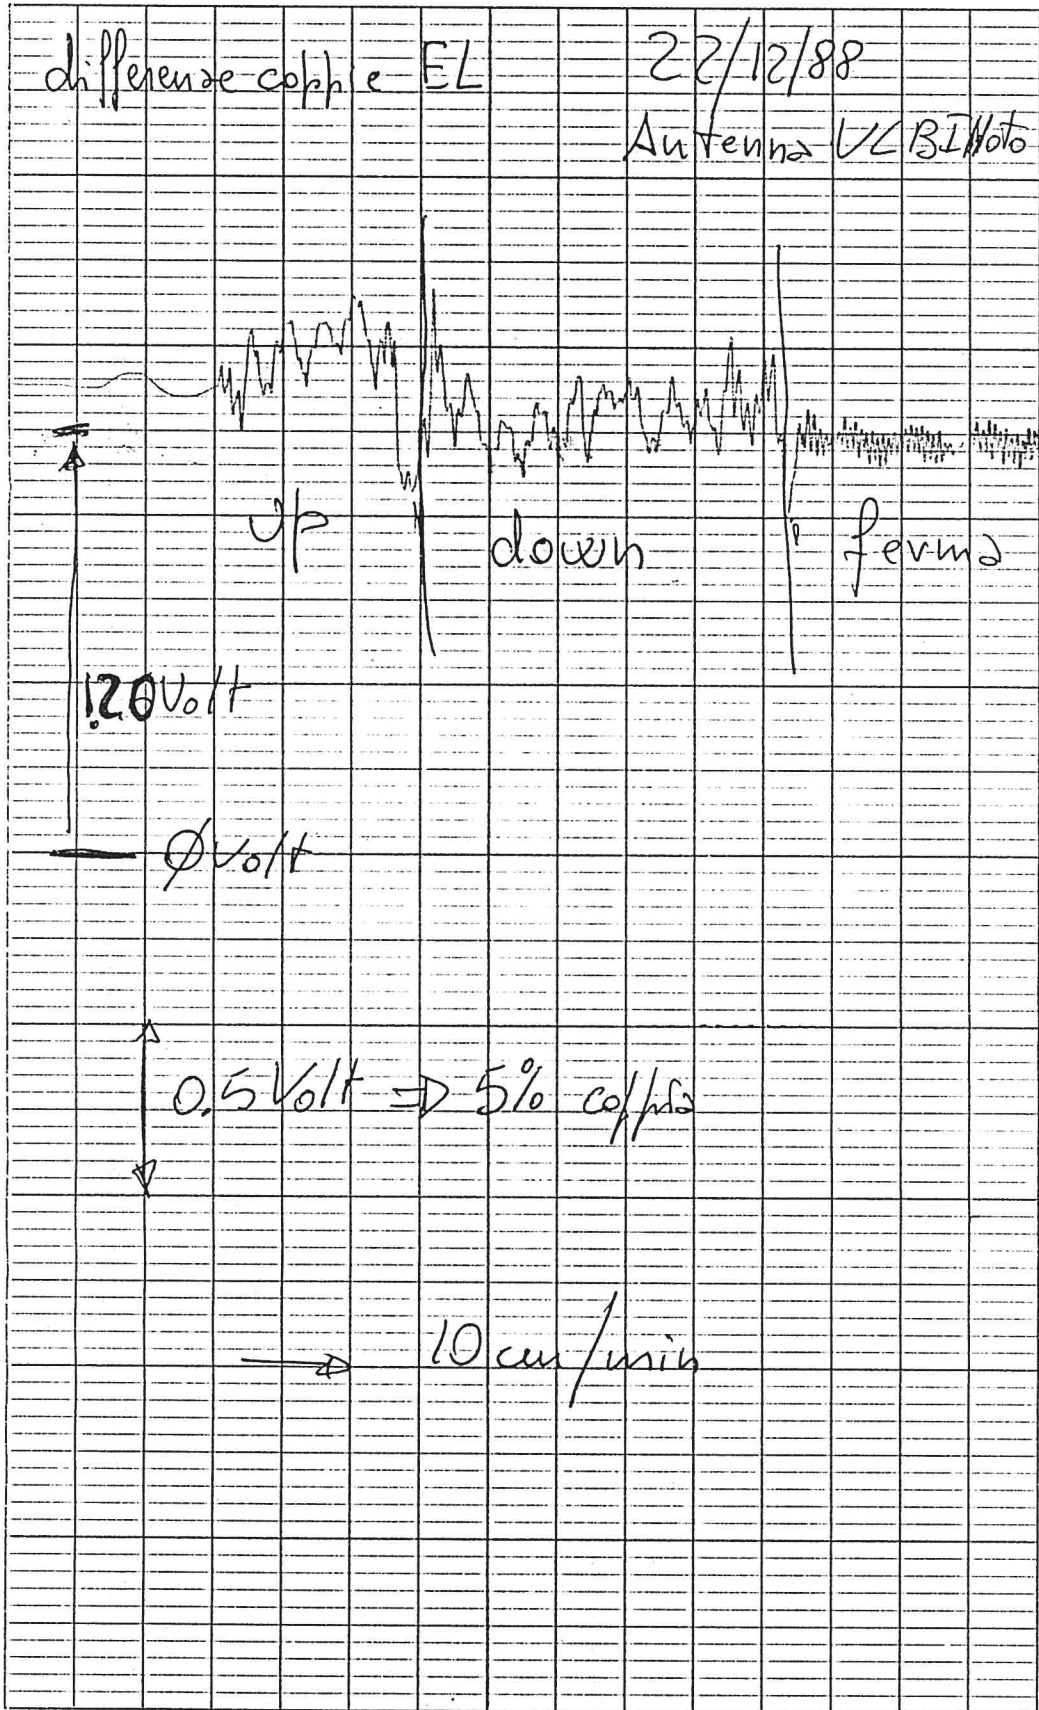 differenze coppie EL 22/12/88
Antenna VLBI Noto
up
down
ferma
1.20 Volt
Ø Volt
0.5 Volt ⇒ 5% coppia
10 cm/min